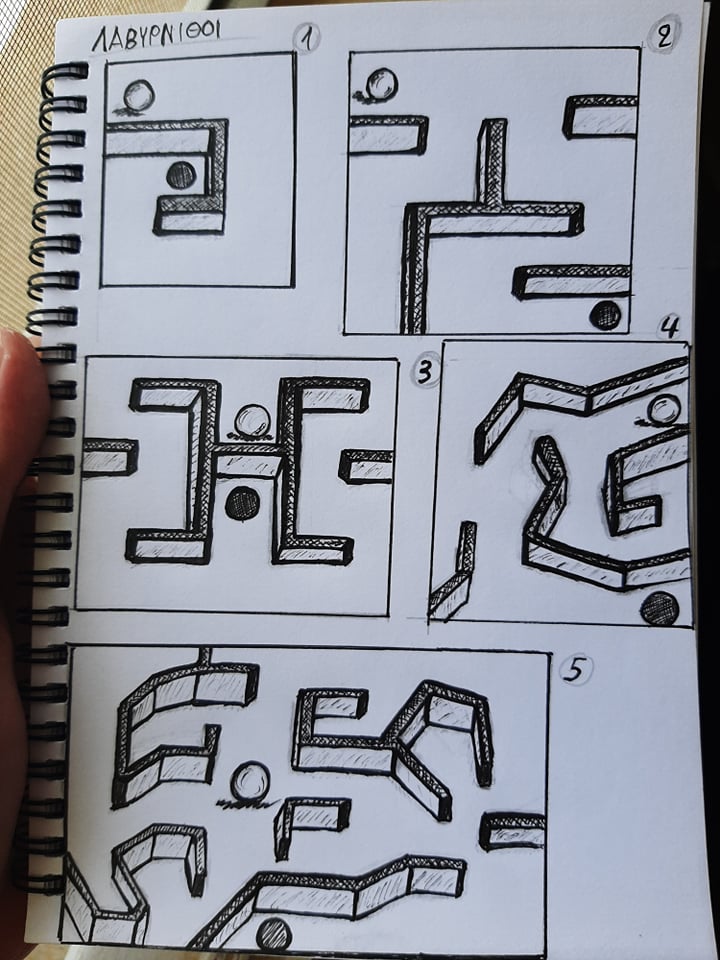 ΛΑΒΥΡΝΙΘΟΙ
1
2
3
4
5